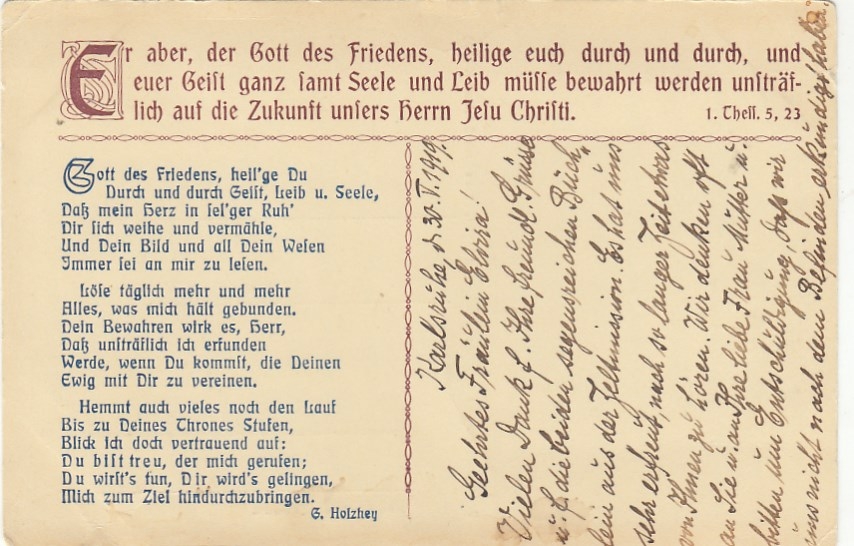 Er aber, der Gott des Friedens, heilige euch durch und durch, und
euer Geist ganz samt Seele und Leib müsse bewahrt werden unsträf-
lich auf die Zukunft unsers Herrn Jesu Christi.
1. Thess. 5, 23
Gott des Friedens, heil'ge Du
Durch und durch Geist, Leib u. Seele,
Daß mein Herz in sel'ger Ruh'
Dir sich weihe und vermähle,
Und Dein Bild und all Dein Wesen
Immer sei an mir zu lesen.
Löse täglich mehr und mehr
Alles, was mich hält gebunden.
Dein Bewahren wirk es, Herr,
Daß unsträflich ich erfunden
Werde, wenn Du kommst, die Deinen
Ewig mit Dir zu vereinen.
Hemmt auch vieles noch den Lauf
Bis zu Deines Thrones Stufen,
Blick ich doch vertrauend auf:
Du bist treu, der mich gerufen;
Du wirst's tun, Dir wird's gelingen,
Mich zum Ziel hindurchzubringen.
G. Holzhey
Karlsruhe, d 30. V. 1919.
Geehrtes Fräulein Elvira!
Vielen Dank f. Ihre freundl. Grüsse
u. f. die beiden segensreichen Büch-
lein aus der Zeltmission. Es hat uns
sehr erfreut, nach so langer Zeit etwas
von Ihnen zu hören. Wir denken oft
an Sie u. an Ihre liebe Frau Mutter u.
bitten um Entschuldigung, daß wir
uns nicht nach dem Befinden erkundigt haben.